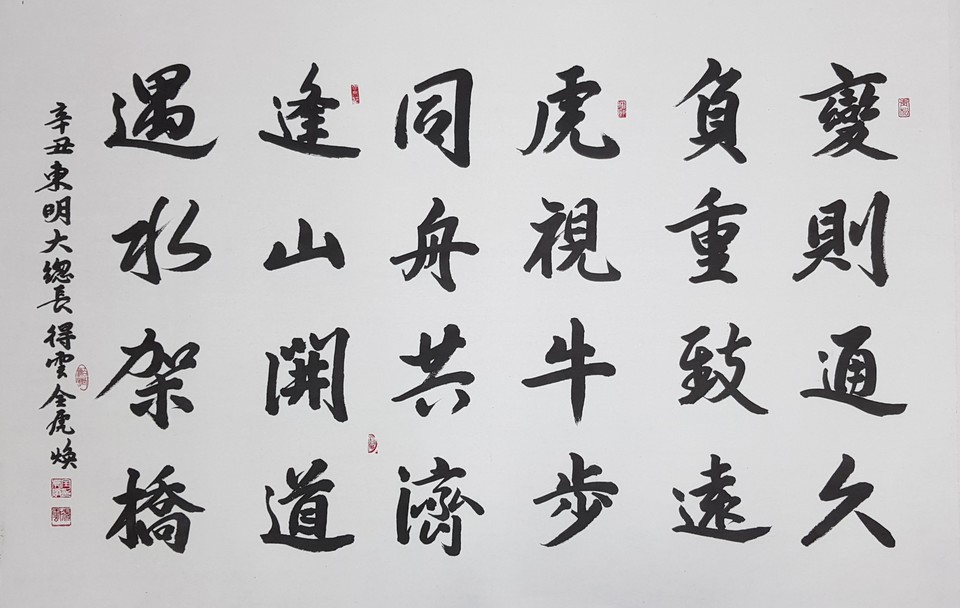 變則通久
負重致遠
虎視牛步
同舟共濟
逢山開道
遇水架橋
辛丑東明大總長得雲全虎煥